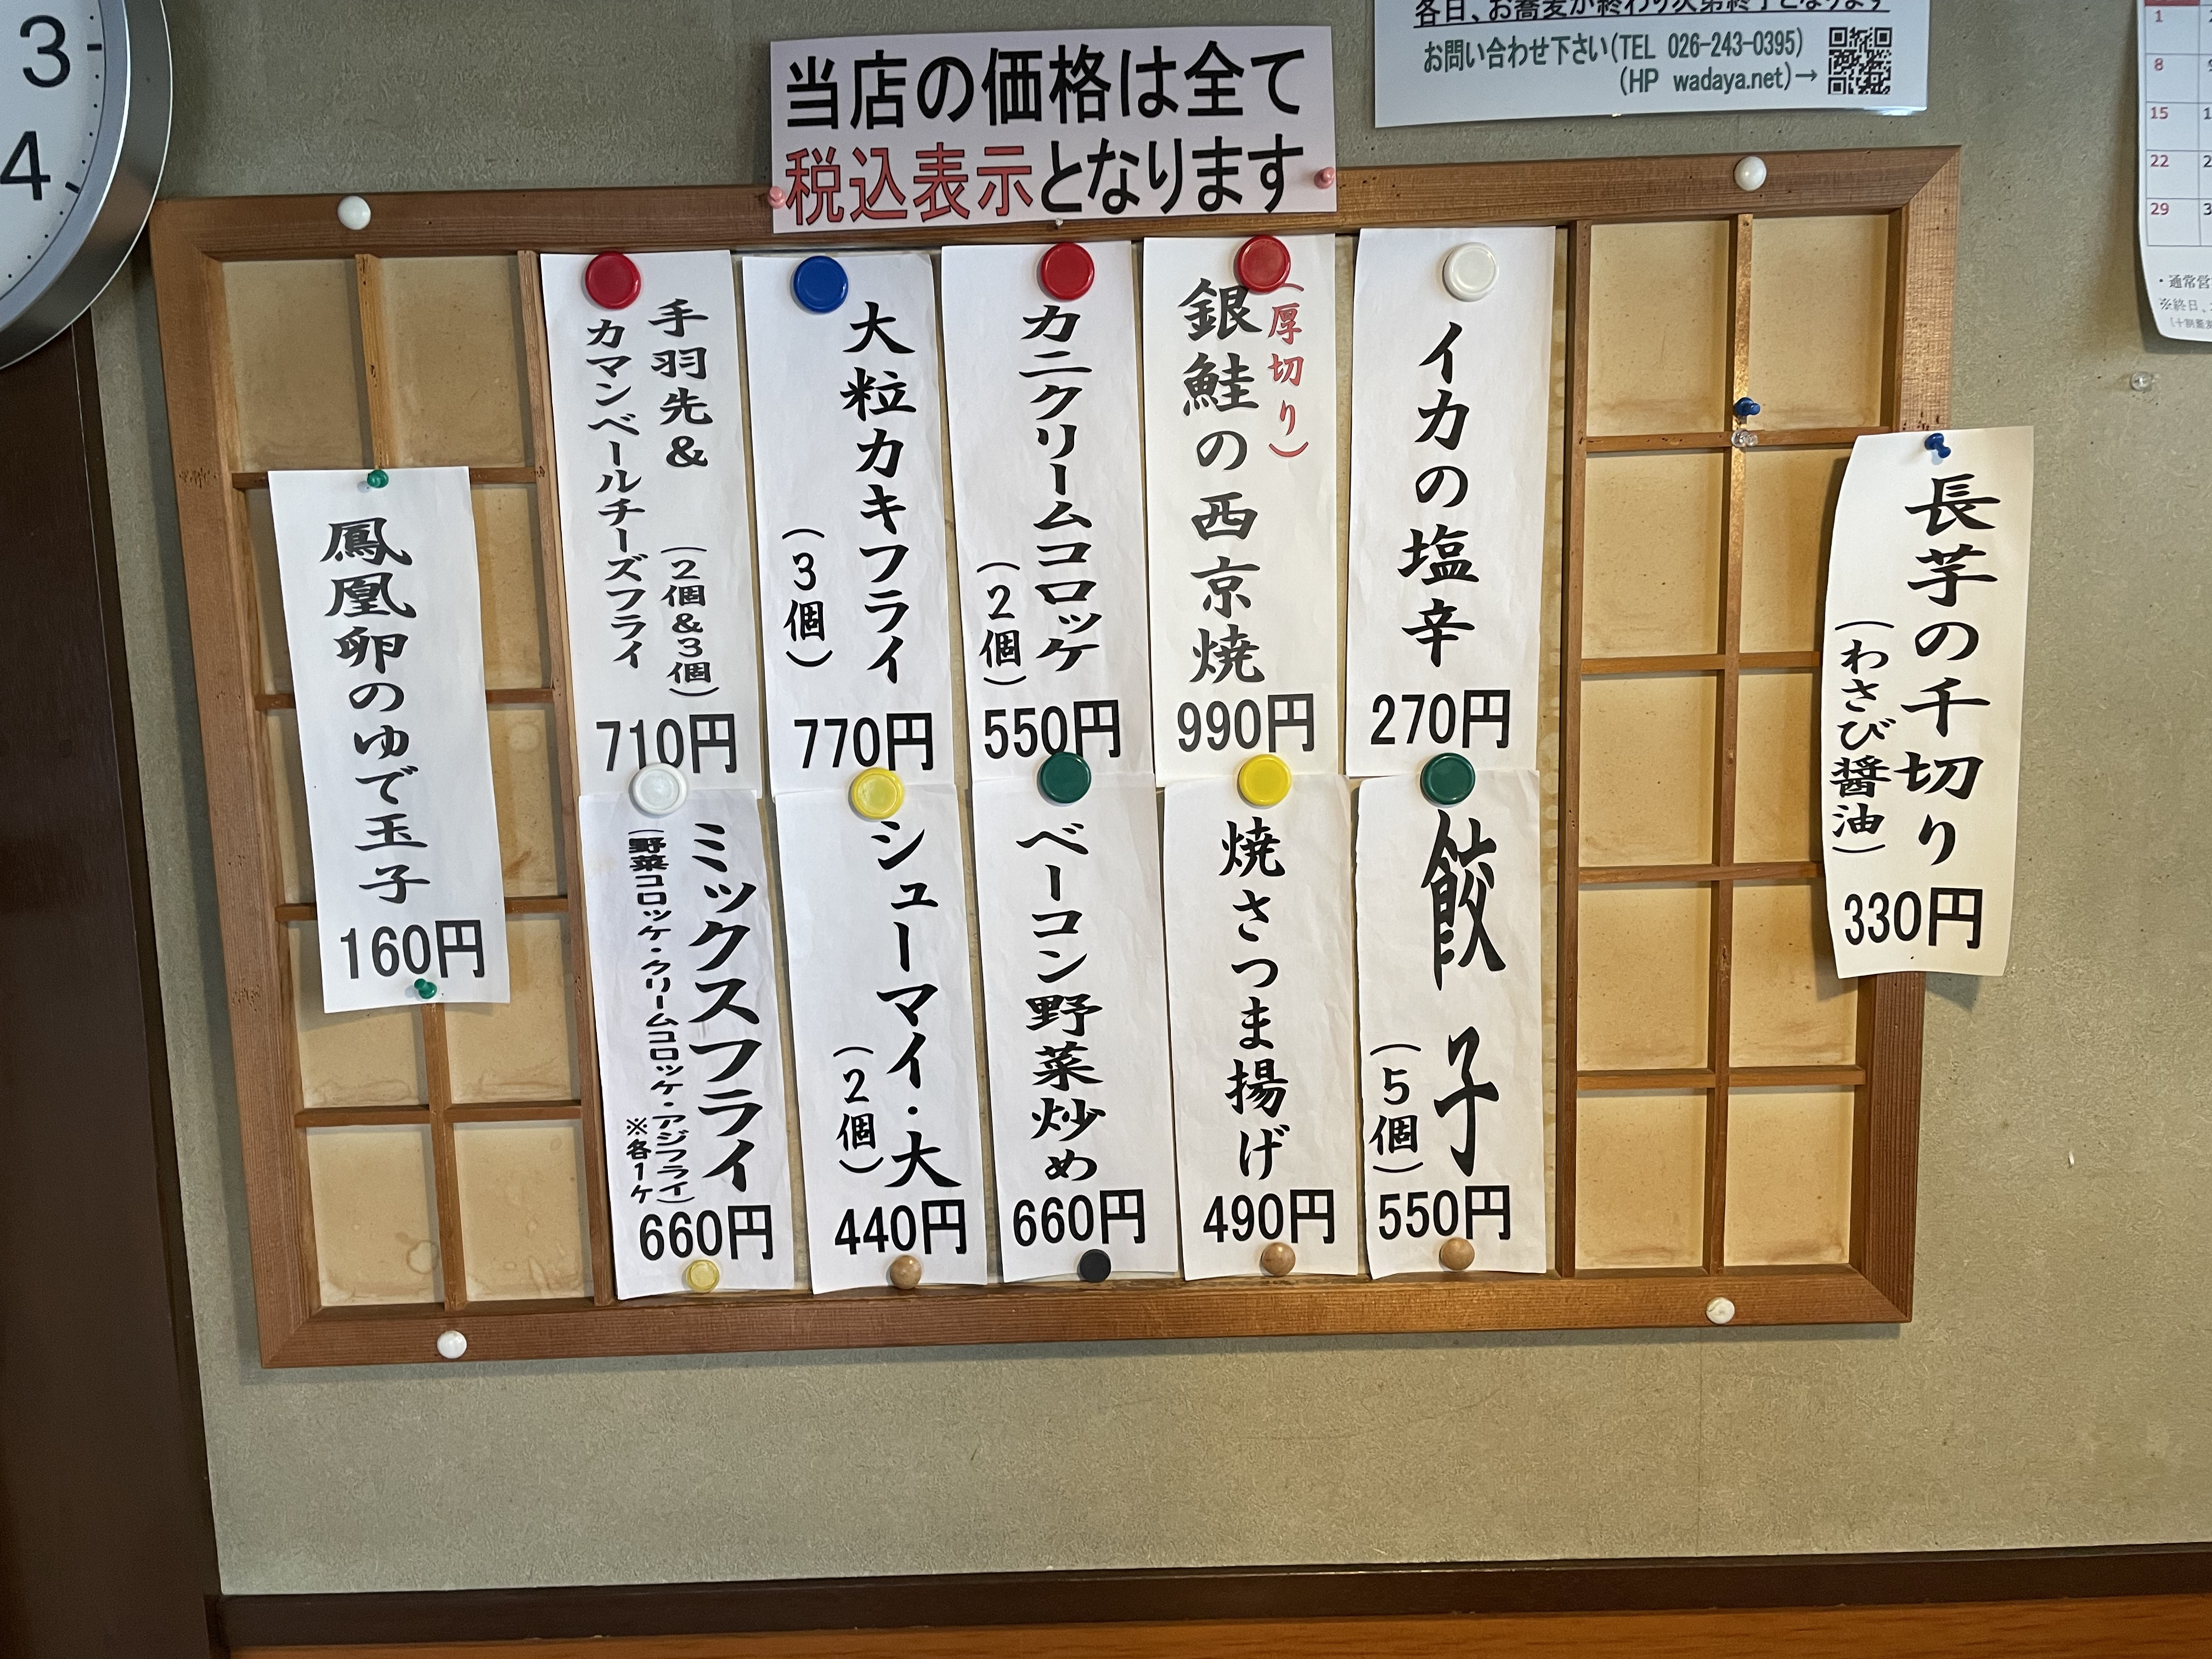 当店の価格は全て
税込表示となります
各日、お蕎麦が終わり次第終了となります
お問い合わせ下さい(TEL 026-243-0395)
(HP wadaya.net)→
3
4
1
8
15
22
29
・通常営
※終日、
長芋の千切り
(わさび醤油)
330円
イカの塩辛
270円
(厚切り)
銀鮭の西京焼
990円
カニクリームコロッケ
(2個)
550円
大粒カキフライ
(3個)
770円
手羽先& (2個&3個)
カマンベールチーズフライ
710円
餃子
(5個)
550円
焼さつま揚げ
490円
ベーコン野菜炒め
660円
シューマイ・大
(2個)
440円
ミックスフライ
(野菜コロッケ・クリームコロッケ・アジフライ)
※各1ヶ
660円
鳳凰卵のゆで玉子
160円